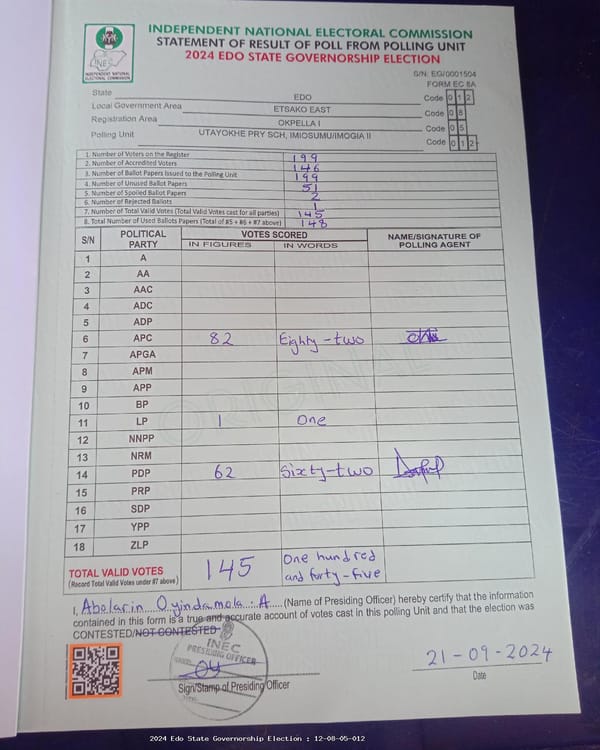 INDEPENDENT NATIONAL ELECTORAL COMMISSION
STATEMENT OF RESULT OF POLL FROM POLLING UNIT
2024 EDO STATE GOVERNORSHIP ELECTION
INEC
INDEPENDENT NATIONAL
ELECTORAL COMMISSION
S/N: EG/0001504
FORM EC 8A
State EDO Code 0 1 2
Local Government Area ETSAKO EAST Code 0 8
Registration Area OKPELLA I Code 0 5
Polling Unit UTAYOKHE PRY SCH, IMIOSUMU/IMOGIA II Code 0 1 2
1. Number of Voters on the Register 199
2. Number of Accredited Voters 146
3. Number of Ballot Papers Issued to the Polling Unit 199
4. Number of Unused Ballot Papers 51
5. Number of Spoiled Ballot Papers 2
6. Number of Rejected Ballots 1
7. Number of Total Valid Votes (Total Valid Votes cast for all parties) 145
8. Total Number of Used Ballots Papers (Total of #5 + #6 + #7 above) 148
S/N POLITICAL PARTY VOTES SCORED NAME/SIGNATURE OF POLLING AGENT
IN FIGURES IN WORDS
1 A
2 AA
3 AAC
4 ADC
5 ADP
6 APC 82 Eighty-two
7 APGA
8 APM
9 APP
10 BP
11 LP 1 One
12 NNPP
13 NRM
14 PDP 62 Sixty-two
15 PRP
16 SDP
17 YPP
18 ZLP
ORIGINAL
TOTAL VALID VOTES 145 One hundred and forty-five
(Record Total Valid Votes under #7 above)
I, Abolarin Oyindamola A (Name of Presiding Officer) hereby certify that the information
contained in this form is a true and accurate account of votes cast in this polling Unit and that the election was
CONTESTED/NOT CONTESTED
INEC
PRESIDING OFFICER
21-09-2024
Sign/Stamp of Presiding Officer
Date
2024 Edo State Governorship Election : 12-08-05-012